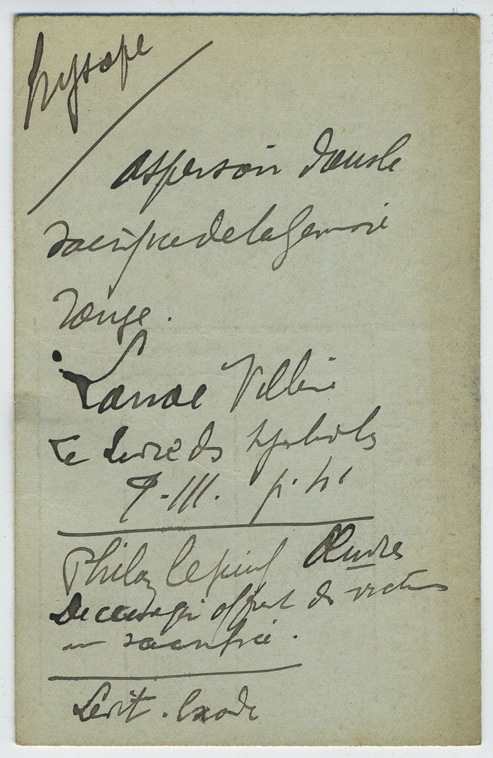 hysope
aspersoir dans le
sacrifice de la genisse
rouge.
Le livre des symboles
T. III. p.
Philon le juif Œuvres
De ceux qui offrent des victimes
en sacrifice.
Levit. Exode